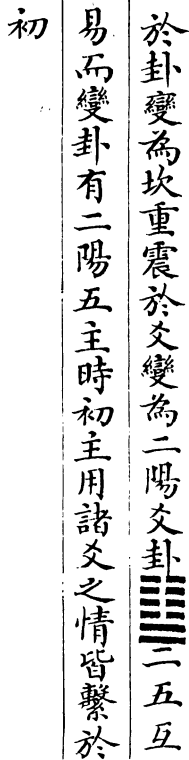 於卦變為坎重震於爻變為二陽爻卦䷂二五互
易而變卦有二陽五主時初主用諸爻之情皆繫於
初